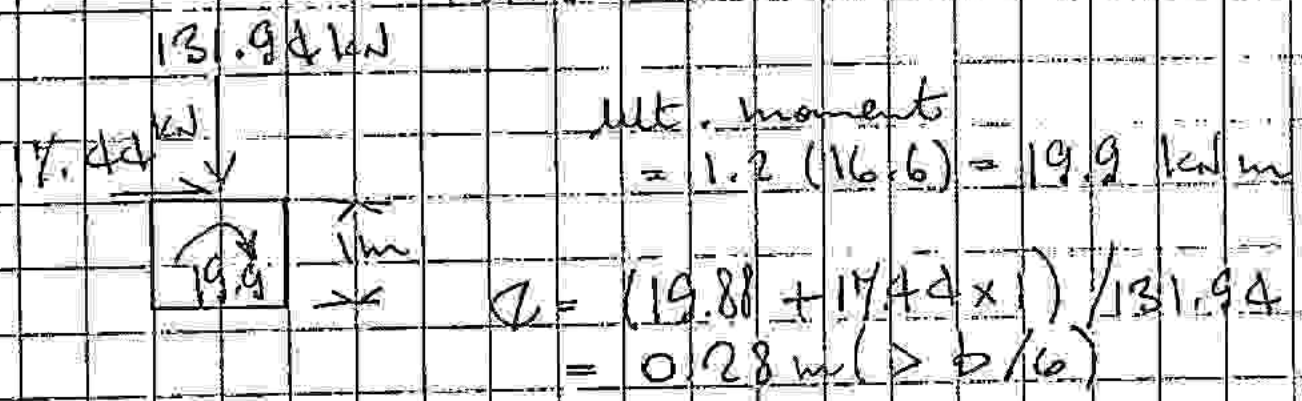 131.94 kN
17.44 kN
Ult. moment
= 1.2 (16.6) = 19.9 kNm
19.9
1m
e = (19.88 + 17.44 x 1) / 131.94
= 0.28 m ( > b/6)